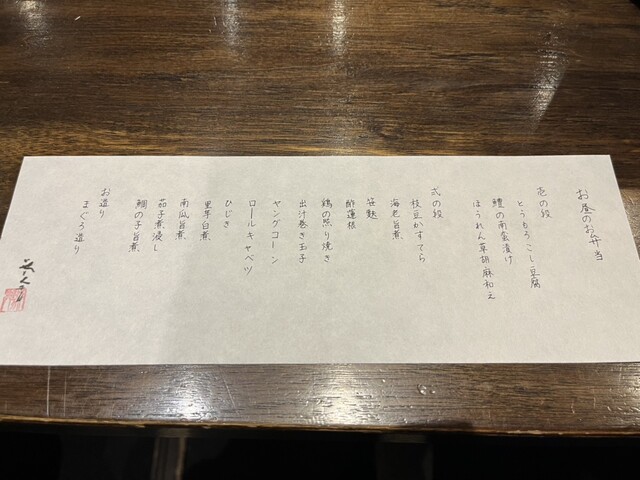 お昼のお弁当
壱の段
とうもろこし豆腐
鱧の南蛮漬け
ほうれん草胡麻和え
弍の段
枝豆かすてら
海老旨煮
笹麩
酢蓮根
鶏の照り焼き
出汁巻き玉子
ヤングコーン
ロールキャベツ
ひじき
里芋白煮
南瓜旨煮
茄子煮浸し
鯛の子旨煮
お造り
まぐろ造り